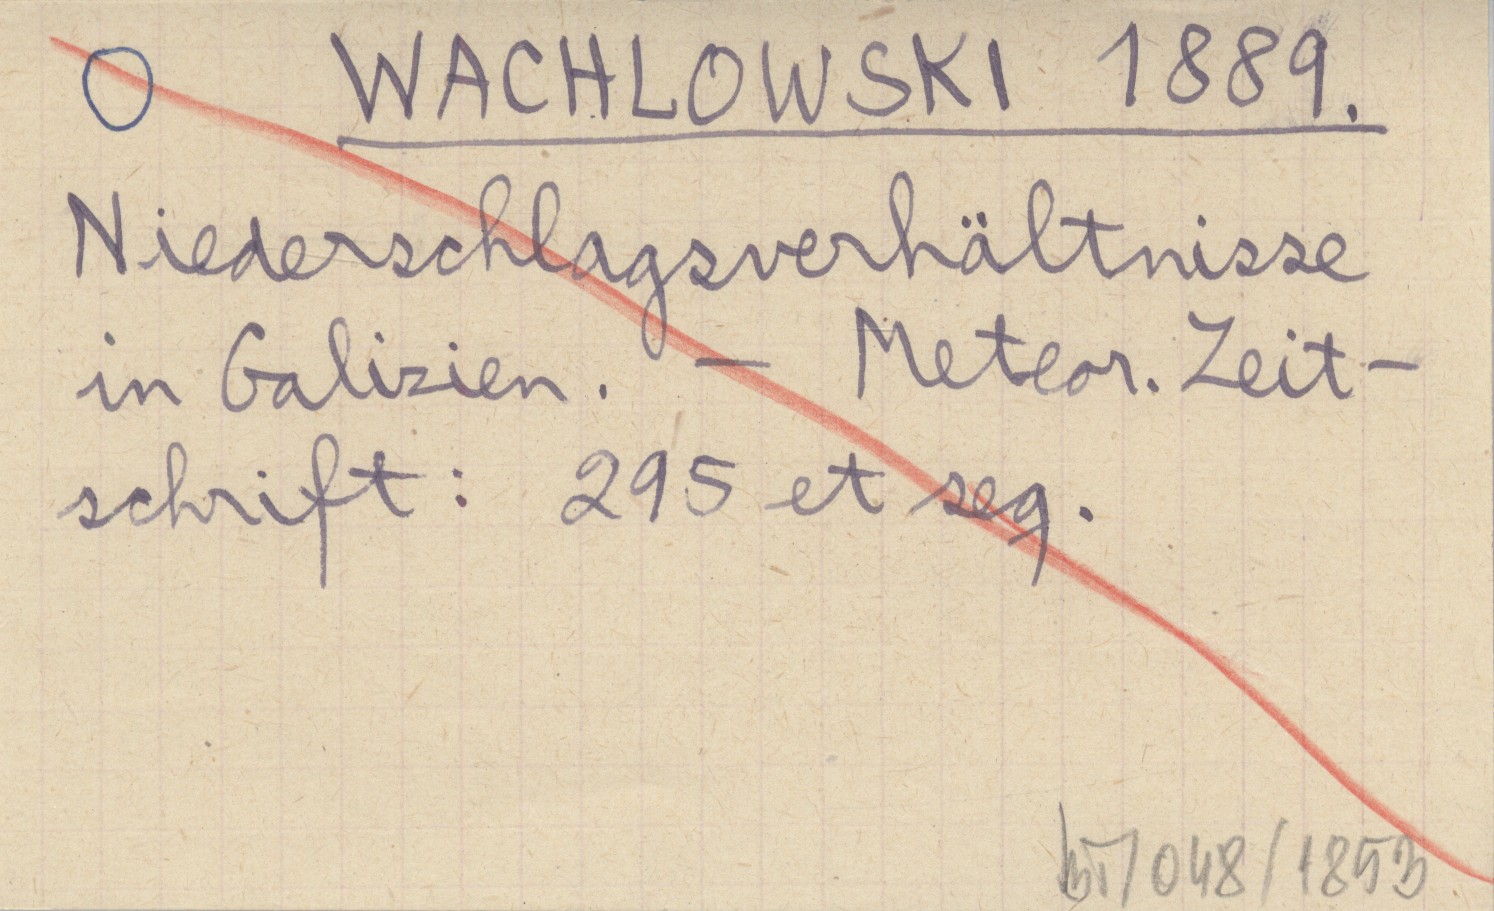 WACHLOWSKI 1889.
Niederschlagsverhältnisse
in Galizien. — Meteor. Zeit-
schrift: 295 et seq.
/048/1853